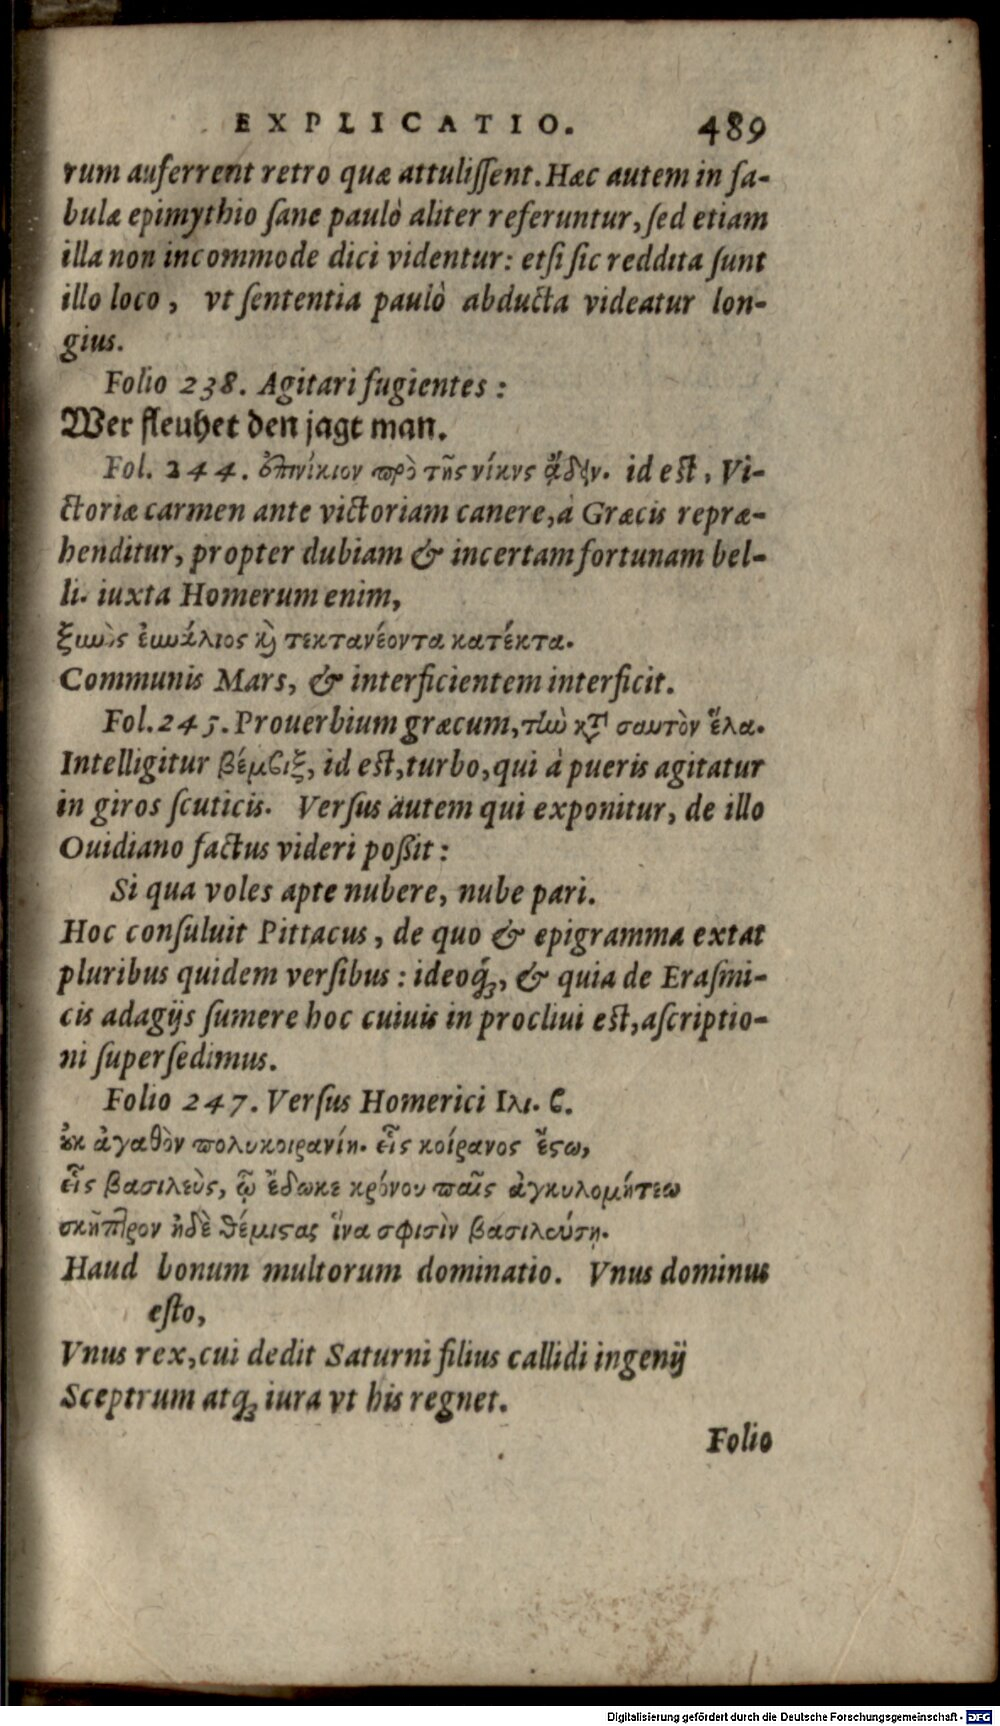 EXPLICATIO. 489
rum auferrent retro quæ attuliſſent. Hæc autem in fa-
bulæ epimythio ſane paulò aliter referuntur, ſed etiam
illa non incommode dici videntur: etſi ſic reddita ſunt
illo loco, vt ſententia paulò abducta videatur lon-
gius.
Folio 238. Agitari fugientes:
Wer fleuhet den jagt man.
Fol. 244. ἐπινίκιον πρὸ τῆς νίκης ᾄδειν. id eſt, Vi-
ctoriæ carmen ante victoriam canere, à Græcis repræ-
henditur, propter dubiam & incertam fortunam bel-
li. iuxta Homerum enim,
ξυνὸς ἐνυάλιος καὶ τεκτανέοντα κατέκτα.
Communis Mars, & interficientem interficit.
Fol. 245. Prouerbium græcum, τὴν κατὰ σαυτὸν ἔλα.
Intelligitur βέμβιξ, id eſt, turbo, qui à pueris agitatur
in giros ſcuticis. Verſus autem qui exponitur, de illo
Ouidiano factus videri poßit:
Si qua voles apte nubere, nube pari.
Hoc conſuluit Pittacus, de quo & epigramma extat
pluribus quidem verſibus: ideoq́;, & quia de Eraſmi-
cis adagijs ſumere hoc cuiuis in procliui eſt, aſcriptio-
ni ſuperſedimus.
Folio 247. Verſus Homerici Ιλι. β.
οὐκ ἀγαθὸν πολυκοιρανίη. εἷς κοίρανος ἔστω,
εἷς βασιλεὺς, ᾧ ἔδωκε κρόνου παῖς ἀγκυλομήτεω
σκῆπτρον ἠδὲ θέμιστας ἵνα σφισὶν βασιλεύῃ.
Haud bonum multorum dominatio. Vnus dominus
eſto,
Vnus rex, cui dedit Saturni filius callidi ingenij
Sceptrum atq; iura vt his regnet.
Folio
Digitalisierung gefördert durch die Deutsche Forschungsgemeinschaft - DFG